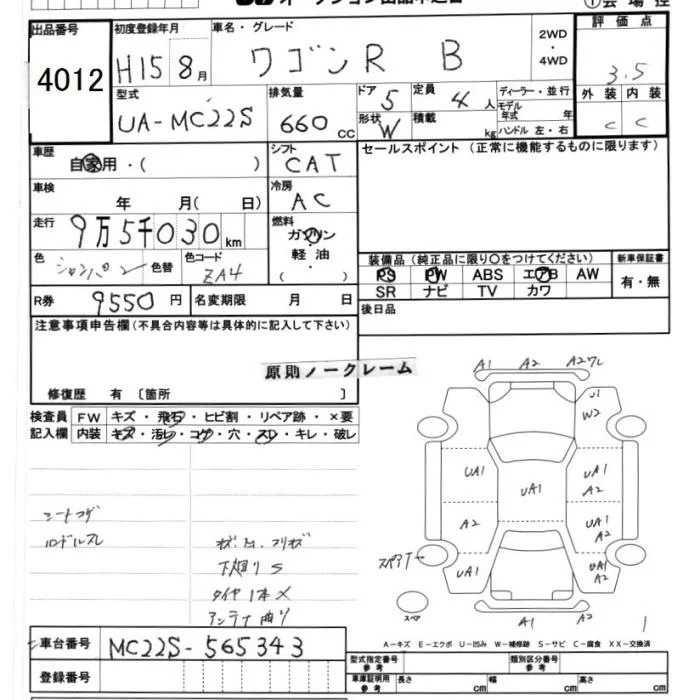 出品番号 初度登録年月 車名・グレード 評価点
4012 H15 8月 ワゴンR B 2WD・4WD 3.5
型式 排気量 ドア 5 定員 4人 ディーラー・並行 外装 内装
UA-MC22S 660cc 形状 W 積載 kg モデル年式 年 ハンドル 左・右 C C
車歴 自家用・( ) シフト CAT セールスポイント(正常に機能するものに限ります)
車検 年 月( 日) 冷房 AC
走行 9万5千030km 燃料 ガソリン
軽油
( )
色 シャンパン 色替 色コード ZA4
装備品(純正品に限り○をつけてください) 新車保証書
PS PW ABS エアB AW 有・無
SR ナビ TV カワ
R券 9550円 名変期限 月 日 後日品
注意事項申告欄(不具合内容等は具体的に記入して下さい)
原則ノークレーム
修復歴 有 〔箇所 〕
検査員 FW キズ・飛石・ヒビ割・リペア跡・×要
記入欄 内装 キズ・汚レ・コゲ・穴・スレ・キレ・破レ
シートコゲ
下廻りS
タイヤ1本×
アンテナ曲り
A1 A2 A2ワレ
U1
W2
UA1 UA1 UA1
A2
A2 UA1
A2
UA1 UA1
A2
スペアタイヤ
スペア
A1 A2
1
A-キズ E-エクボ U-凹み W-補修跡 S-サビ C-腐食 XX-交換済
車台番号 MC22S-565343
登録番号
型式指定番号 参考 類別区分番号 参考
車庫証明用 参考 長さ cm 幅 cm 高さ cm